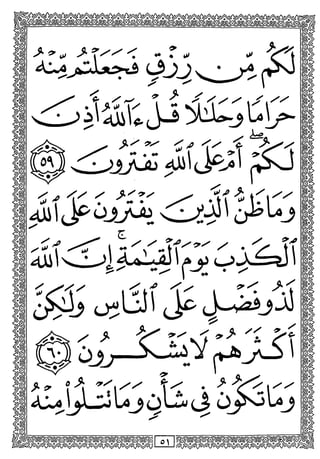 لَكُم مِّن رِّزْقٍ فَجَعَلْتُم مِّنْهُ
حَرَامًا وَحَلَٰلًا قُلْ ءَآللَّهُ أَذِنَ
لَكُمْ ۖ أَمْ عَلَى ٱللَّهِ تَفْتَرُونَ ٥٩
وَمَا ظَنُّ ٱلَّذِينَ يَفْتَرُونَ عَلَى ٱللَّهِ
ٱلْكَذِبَ يَوْمَ ٱلْقِيَٰمَةِ ۗ إِنَّ ٱللَّهَ
لَذُو فَضْلٍ عَلَى ٱلنَّاسِ وَلَٰكِنَّ
أَكْثَرَهُمْ لَا يَشْكُرُونَ ٦٠
وَمَا تَكُونُ فِى شَأْنٍ وَمَا تَتْلُوا۟ مِنْهُ
٥١